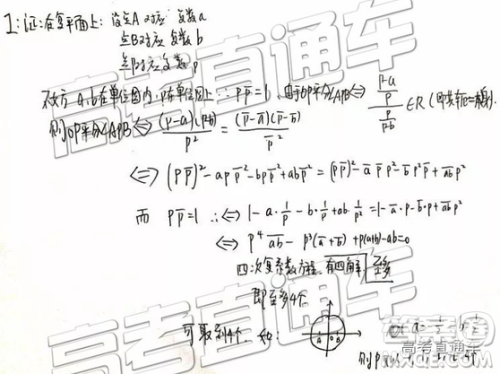 1: 证: 在复平面上: 设点A对应 复数a
点B对应 复数b
点P对应复数 p
a,b在单位圆内, p在单位圆上 ∴ p p̄ = 1, 由于OP平分∠APB ⟺ (p-a)/p / p/(p-b) ∈R
则OP平分∠APB ⟺ (p-a)(p-b)/p² = (p̄-ā)(p̄-b̄)/p̄²
⟺ (pp̄)² - ap p̄² - bp p̄² + ab p̄² = (pp̄)² - ā p̄ p² - b̄ p² p̄ + āb̄ p²
而 pp̄=1 ∴ ⟺ 1 - a·1/p - b·1/p + ab·1/p² = 1 - ā·p - b̄·p + āb̄p²
⟺ p⁴ āb̄ - p³(ā+b̄) + p(a+b) - ab = 0
四次复系数方程, 有四解 至多
即至多4个
可取到4个. 如:
A O B
则P
高考直通车